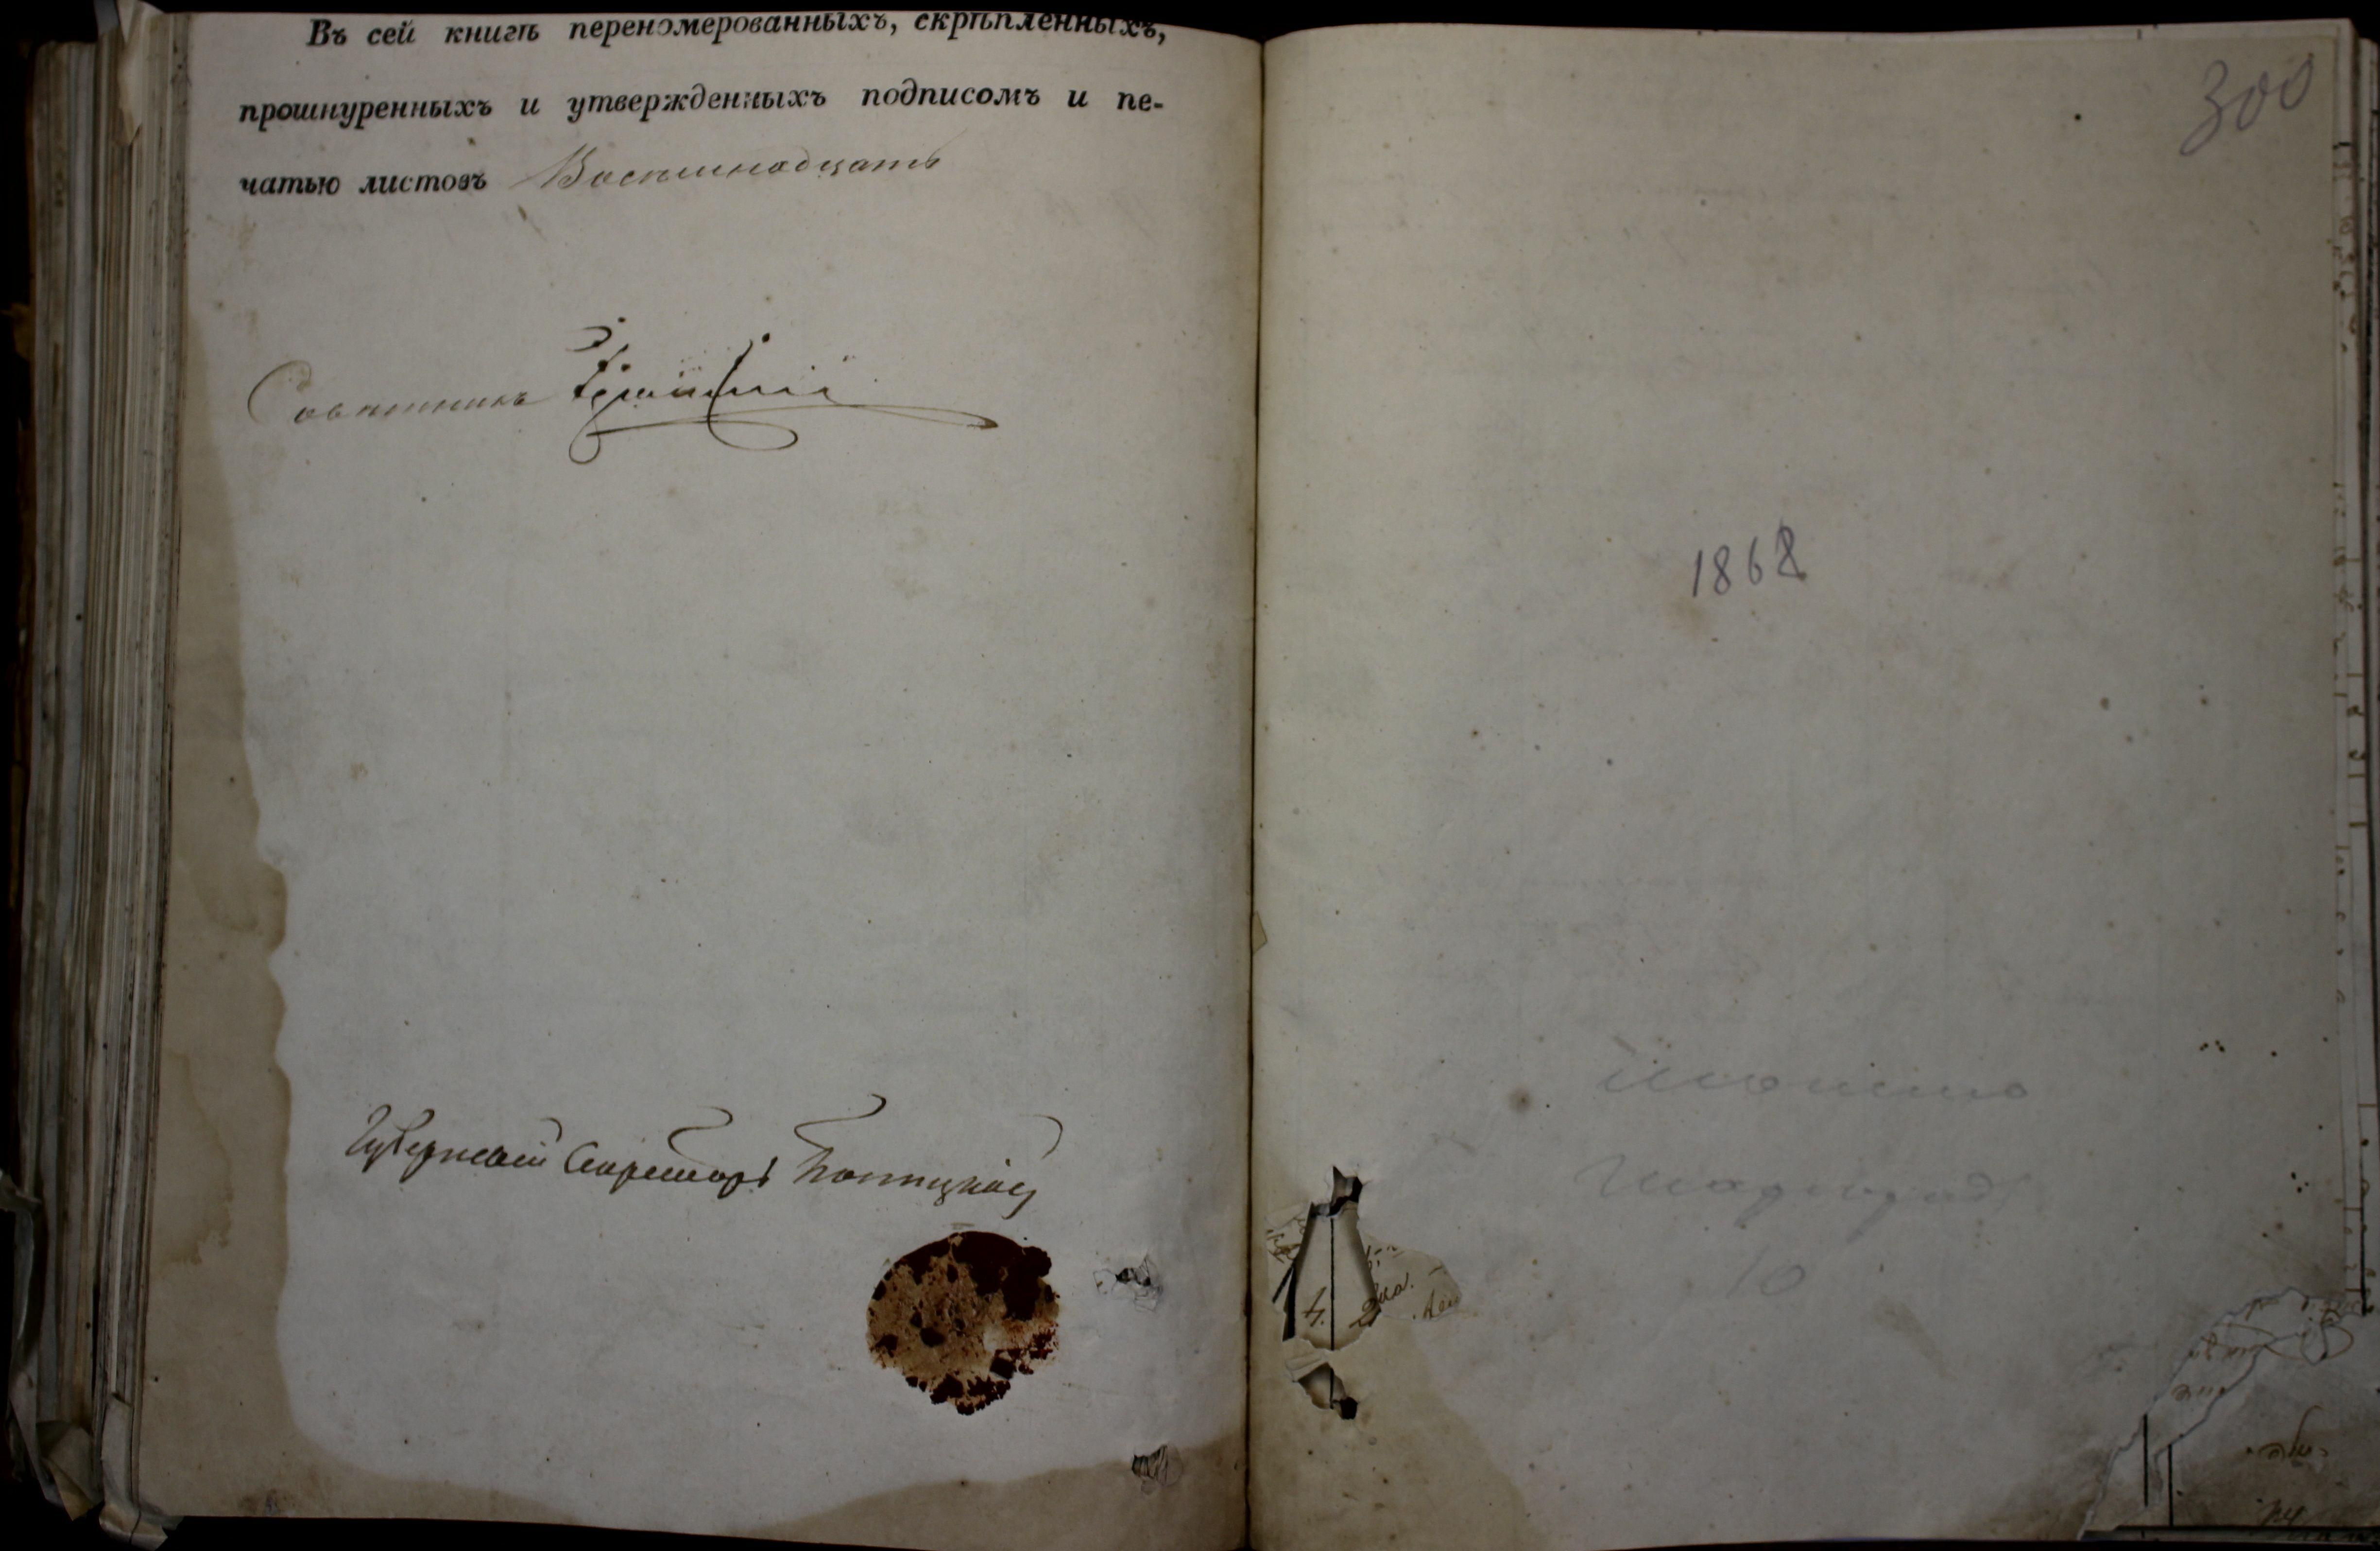 Въ сей книгѣ переномерованныхъ, скрѣпленныхъ,
прошнуренныхъ и утвержденныхъ подписомъ и пе-
чатью листовъ Восемнадцать
Совѣтникъ
Губернскій Секретарь
300
1868
Шаргород
10